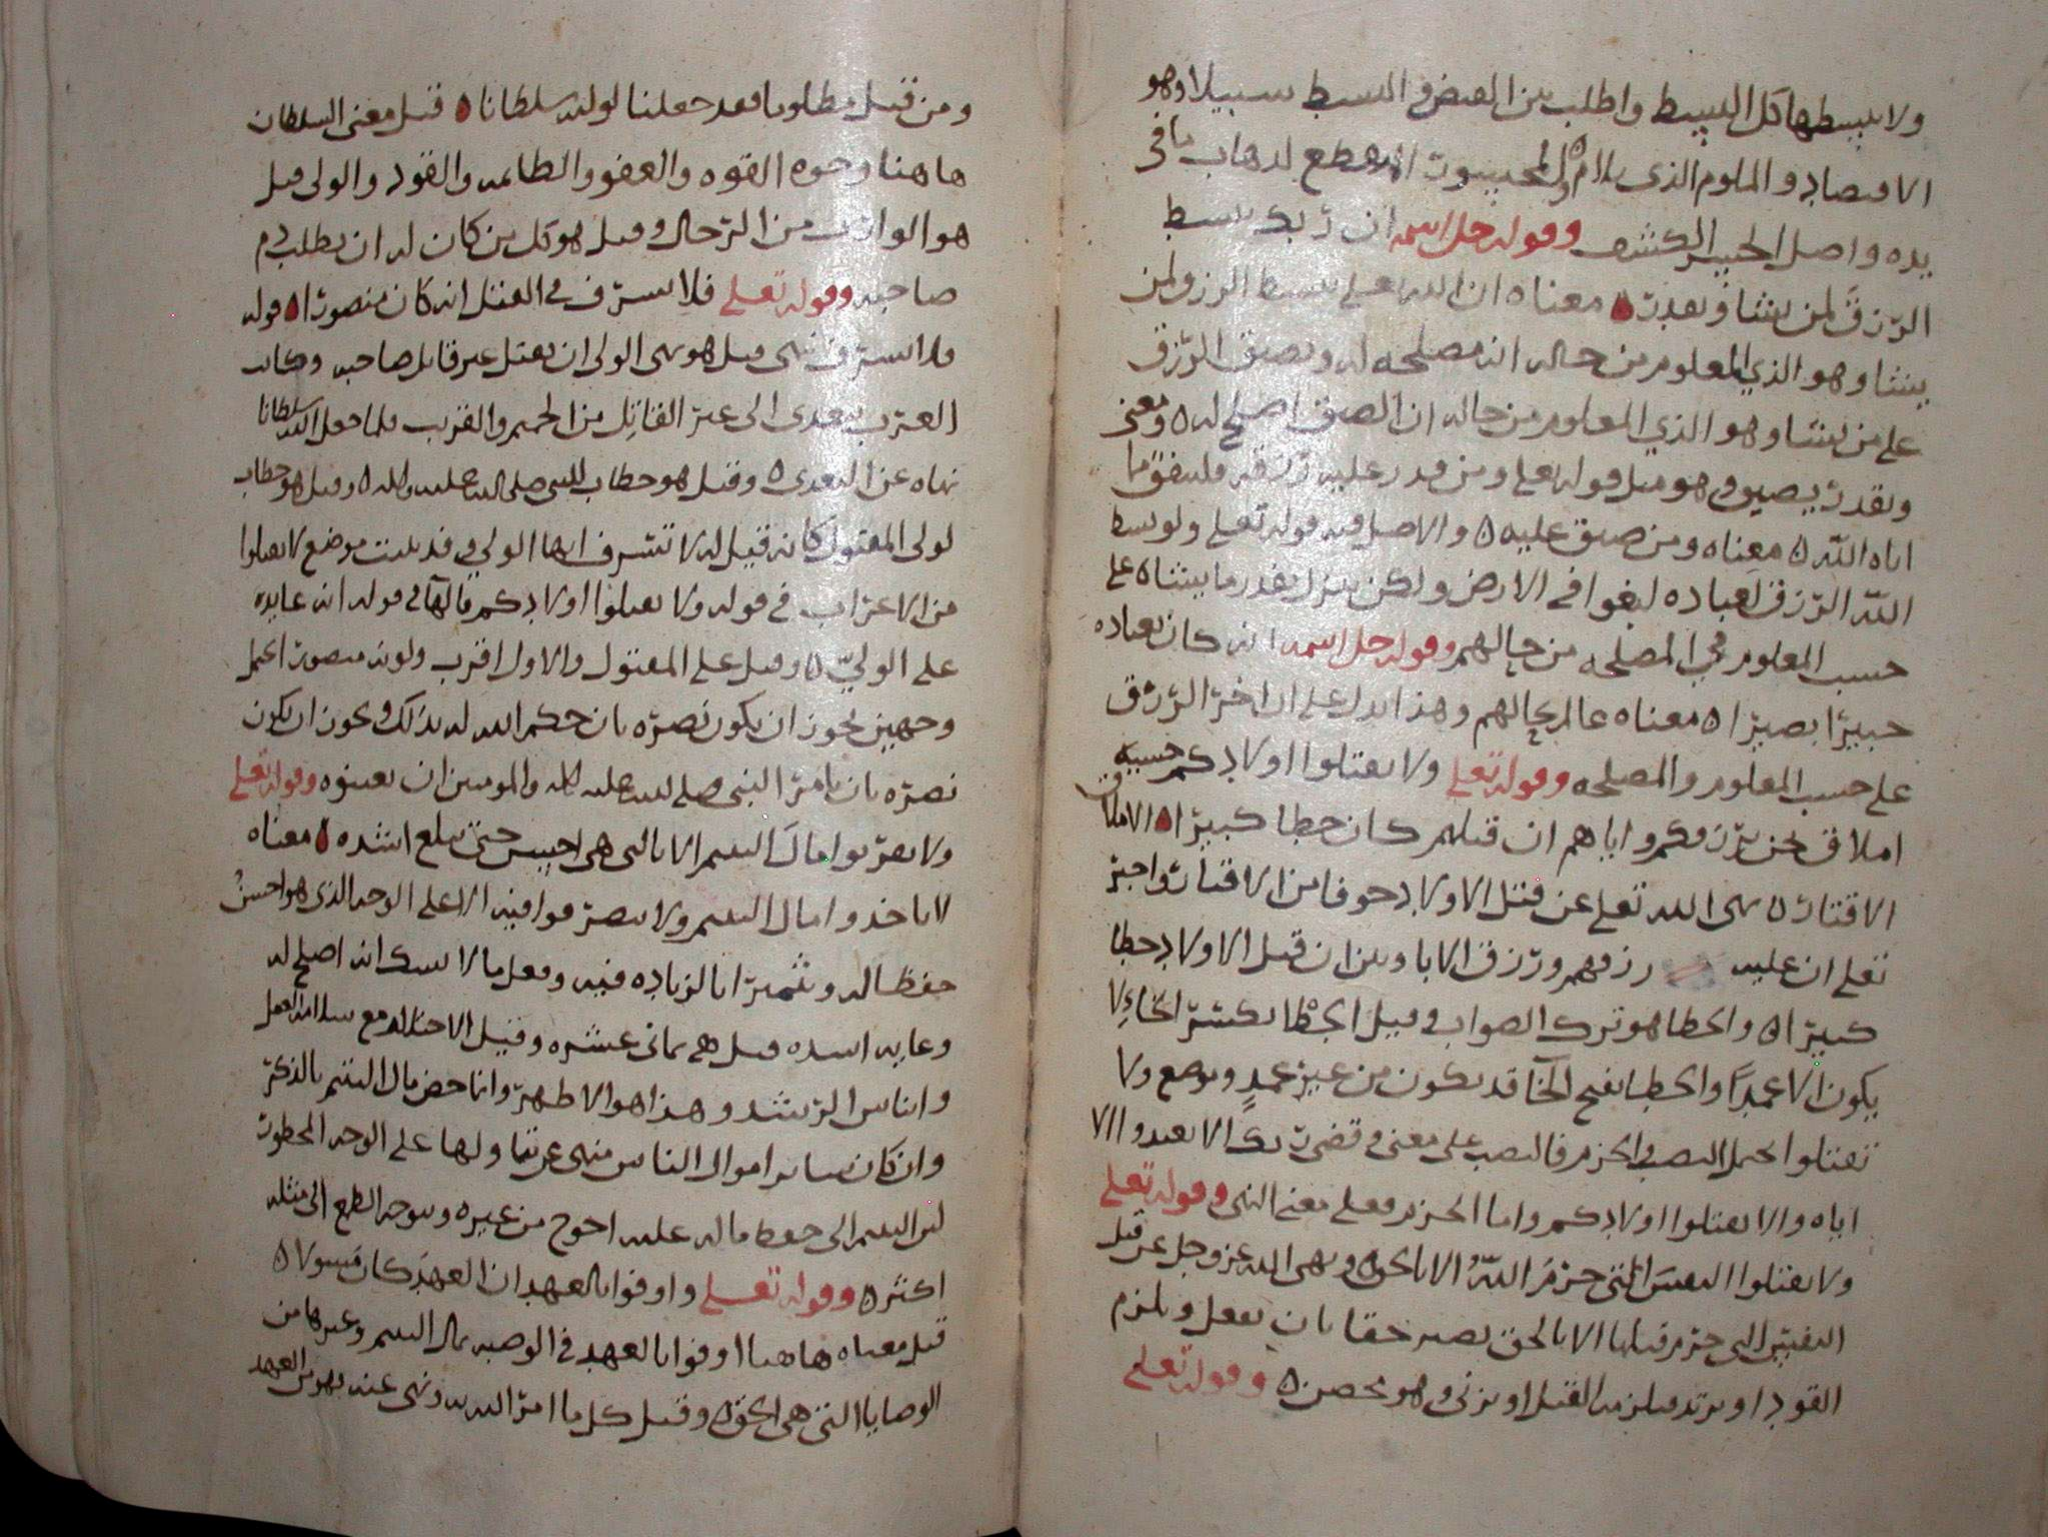 ولا تبسطها كل البسط واطلب بين القبض والبسط سبيلا وهو
الاقتصاد والملوم الذي يلام والمحسور المنقطع لذهاب ما في
يده واصل الحسر الكشف وقوله جل اسمه ان ربك يبسط
الرزق لمن يشا ويقدر معناه ان الله تعلى يبسط الرزق لمن
يشا وهو الذي المعلوم من حاله انه مصلحه له ويضيق الرزق
على من يشا وهو الذي المعلوم من حاله ان الضيق اصلح له ومعنى
ويقدر يضيق وهو مثل قوله تعلى ومن قدر عليه رزقه فلينفق مما
اتاه الله معناه ومن ضيق عليه والاصل فيه قوله تعلى ولو بسط
الله الرزق لعباده لبغوا في الارض ولكن ينزل بقدر ما يشاه على
حسب المعلوم في المصلحه من حالهم وقوله جل اسمه انه كان بعباده
خبيرا بصيرا معناه عالم بحالهم وهذا يدل على ان اخر الرزق
على حسب المعلوم والمصلحه وقوله تعلى ولا تقتلوا اولادكم خشيه
املاق نحن نرزقكم واياهم ان قتلهم كان خطا كبيرا الاملاق
الاقتار نهى الله تعلى عن قتل الاولاد خوفا من الاقتار واخبر
تعلى ان عليه رزقهم ورزق الابا وبين ان قتل الاولاد خطا
كبيرا والخطا هو ترك الصواب وقيل الخطا بكسر الخاء لا
يكون الا عمدا والخطا بفتح الخا قد يكون من غير عمد وموضع ولا
تقتلوا يحتمل النصب والجزم فالنصب على معنى وقضى ربك الا تعبدوا الا
اياه والا تقتلوا اولادكم واما الجزم فعلى معنى النهي وقوله تعلى
ولا تقتلوا النفس التي حرم الله الا بالحق ونهى الله عز وجل عن قتل
النفس التي حرم قتلها الا بالحق بصير حقا بان يفعل ويلزم
القود او يرتد فيلزمه القتل او يزني وهو محصن وقوله تعلى
ومن قتل مظلوما فقد جعلنا لوليه سلطانا قيل معنى السلطان
هاهنا وجوه القوه والعفو والطاعه والقود والولي قيل
هو الوارث من الرجال وقيل هو كل من كان له ان يطلب بدم
صاحبه وقوله تعلى فلا يسرف في القتل انه كان منصورا قوله
فلا يسرف نهى قيل هو نهى الولي ان يقتل غير قاتل صاحبه وكانت
العرب تتعدى الى غير القاتل من الحميم والقريب فلما جعل الله سلطانا
نهاه عن التعدي وقيل هو خطاب للنبي صلى الله عليه واله وقيل هو خطاب
لولي المقتول كانه قيل له لا تسرف ايها الولي وقد بينت موضع لا تقتلوا
من الاعراب في قوله ولا تقتلوا اولادكم فالها في قوله انه عايده
على الولي وقيل على المقتول والاول اقرب وكونه منصورا يحتمل
وجهين يجوز ان يكون نصره بان حكم الله له بذلك ويجوز ان يكون
نصره بان يامر النبي صلى الله عليه واله والمومنين ان يعينوه وقوله تعلى
ولا تقربوا مال اليتيم الا بالتي هي احسن حتى يبلغ اشده معناه
لا ياخذوا مال اليتيم ولا يتصرفوا فيه الا على الوجه الذي هو احسن
حفظا له وتثميرا بالزياده فيه وفعل ما لا يشك انه اصلح له
وغايه اشده قيل هي ثماني عشره وقيل الاحتلام مع سلامه العقل
وايناس الرشد وهذا هو الاظهر وانما خص مال اليتيم بالذكر
وان كان ساير اموال الناس منهى عن تناولها على الوجه المحظور
لان اليتيم الى حفظ ماله عليه احوج من غيره وتوجه الطمع الى مثله
اكثر وقوله تعلى واوفوا بالعهد ان العهد كان مسولا
قيل معناه هاهنا اوفوا بالعهد في الوصيه بمال اليتيم وغيرها من
الوصايا التي هي الحق وقيل كل ما امر الله به ونهى عنه فهو من العهد